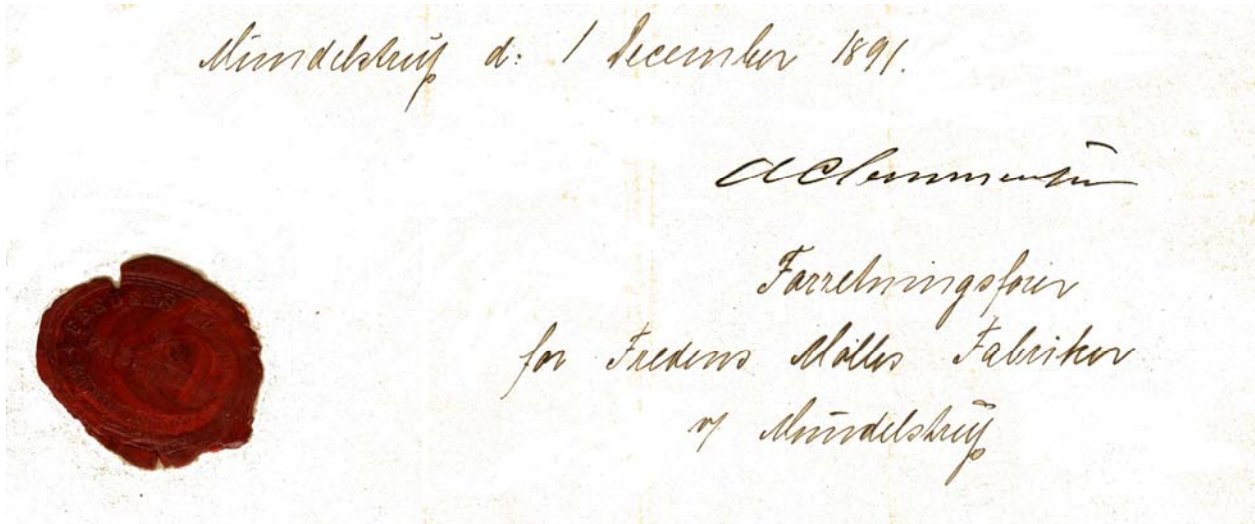 Mundelstrup d: 1 December 1891.
A Clemmensen
Forretningsfører
for Fredens Mølles Fabriker
v/ Mundelstrup
FREDENS